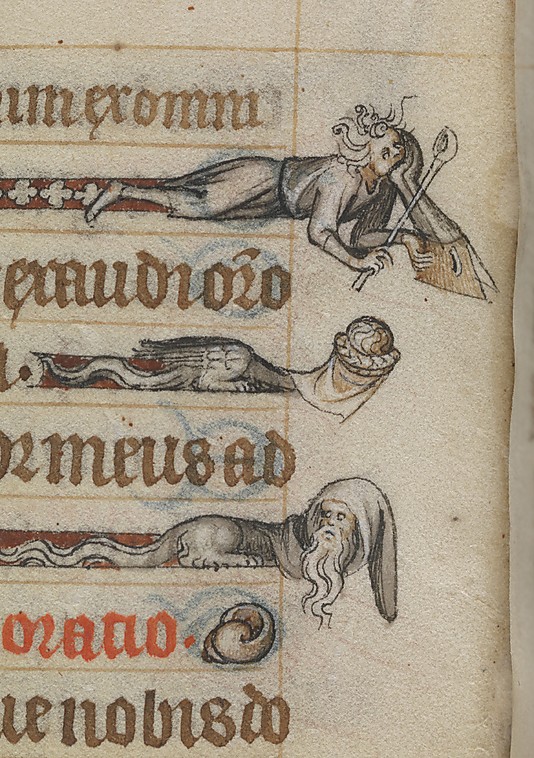 um ex omni
exaudi or̄o
a.
or meus ad
oratio.
ue nobis do